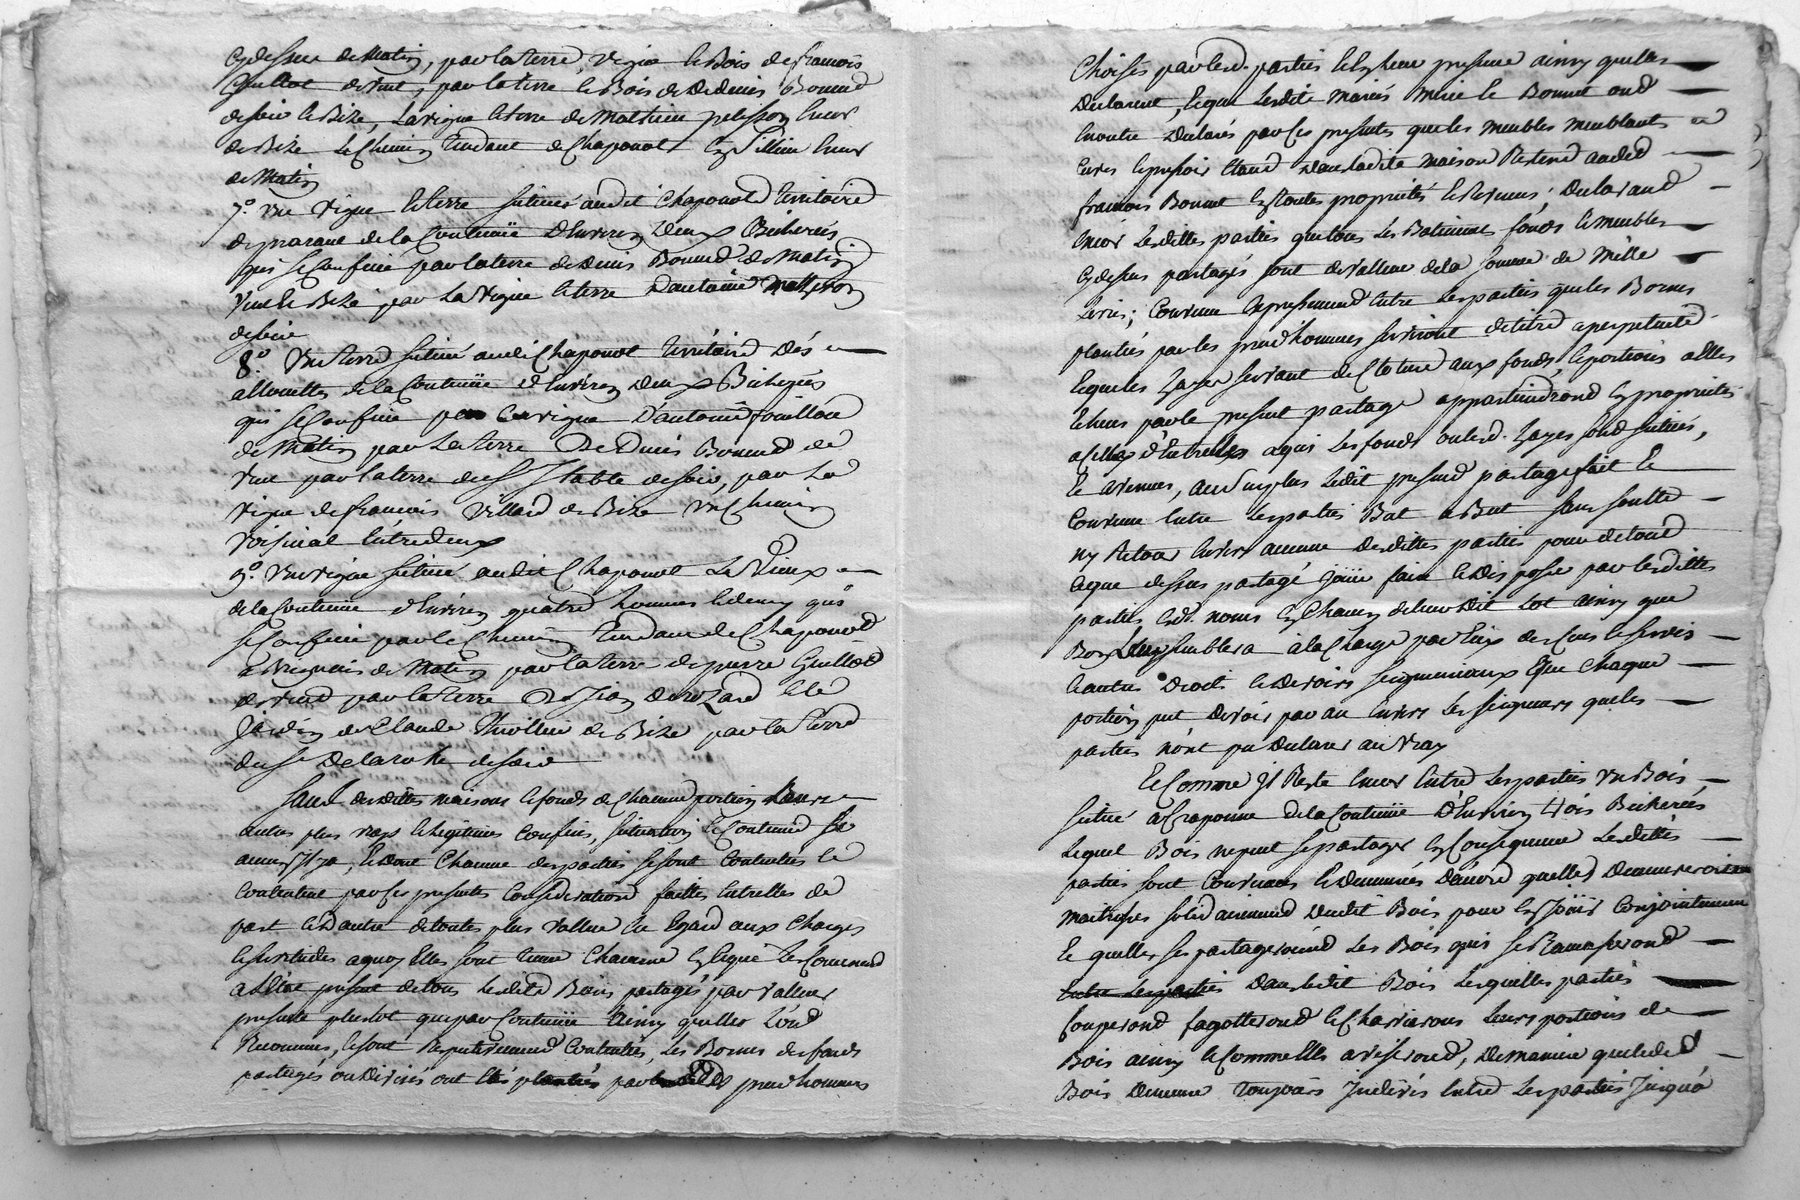 cy dessus de Matin, par la terre, vigne et Bois de francois
Guillot de vent, par la terre et Bois de Denis Bonnud
de soir et Bize, La vigne et terre de Mathieu pelisson encor
de Bize Le Chemin tendant de Chaponost encor
de Matin
7.° une vigne et terre scituée audit Chaponost territoire
de de la Contenüe d'Environ deux Bicherées
qui se confine par la terre de Denis Bonnud de Matin
vent et Bize par La vigne et terre d'antoine
de soir
8.° Une terre scituée audit Chaponost territoire des
allouettes de la Contenüe d'Environ deux Bicherées
qui se confine par la vigne d'antoine fouillou
de Matin par La terre De Denis Bonnud de
vent par la terre du Sr. de soir, par La
vigne de francois Villard de Bize un Chemin
voisinal Entre deux
9.° une vigne scituée audit Chaponost Le Vieux
de la Contenüe d'Environ quatre hommes et demy qui
se Confine par le Chemin tendant de Chaponost
a de Matin par la terre de pierre Guillot
de vent par la terre De Jean et le
Jardin de Claude Thiollier de Bize par la terre
du Sr. Delaroche de soir
Sauf desdittes maisons et fonds de Chacune portion
autres plus vrays et Legitimes Confins, scituation et Contenüe si
aucuns il y a, Et dont Chacune des parties se sont Contentées et
Contentent par ces presentes Consideration faitte Entrelles de
part et d'autre de toutes plus vallüe Eu Egard aux Charges
et servitudes a quoy Elles sont tenue Chacune
present de tous lesdits Biens partagés par valleur
presente plustot que par Contenüe ainsy qu'elles L'ont
Reconnues, et sont respectivement Contentées, Les Bornes des fonds
partagés ou Divisés ont été plantées par prud'hommes
Choisis par lesd. parties icy presente ainsy quelles
Declarent, Et que Lesdits Mariés et Bonnet ont
Enoutre Declarés par ces presentes que les meubles meublants
Cuves et pressoir Etant dans ladite maison Restent audit
francois Bonnet En toutes propriétés Declarant
Encor Lesdittes parties que tous Les Batimens fonds et meubles
cy dessus partagés sont de valleur de la somme de Mille
Livres; Convenu Expressement Entre Les parties que les Bornes
plantées par les prud'hommes serviront de titre a perpetuité
Et que les hayes servant de Cloture aux fonds, et portions a Elles
Echues par le present partage appartiendront En propriété
a Celles d'Entrelles a qui Les fonds ou lesd. hayes sont scituées,
Et Avenues, au Surplus Ledit present partage fait Et
Convenu Entre Les parties But a But sans soulte
ny Retour Envers aucune Desdittes parties pour de tout
Ce que dessus partagé Joüir faire et Disposer par lesdittes
parties Esd. noms En Chacun de leur dit Lot ainsy que
Bon Leur semblera a la Charge par Eux des Cens et servis
et autres Droits et Devoirs seigneuriaux Que Chaque
portion peut devoir par an Envers Les seigneurs que les
parties n'ont pu Declarer au vray
Et Comme il Reste Encor Entre Les parties un Bois
scitué a Craponne de la Contenüe D'Environ trois Bicherées
Lequel Bois ne peut se partager En Consequence Lesdittes
parties sont Convenues et Demeurées D'acord quelles Demeureroient
maitresses solidairement dudit Bois pour En Joüir Conjointement
Et quelles se partageroient Les Bois qui se Ramasseront
Entre Les parties Dans ledit Bois Lesquelles parties
Couperont fagotteront et Leurs portions de
Bois ainsy et Comme Elles aviseront, De maniere que ledit
Bois Demeure Toujours Indivis Entre Les parties Jusqu'a